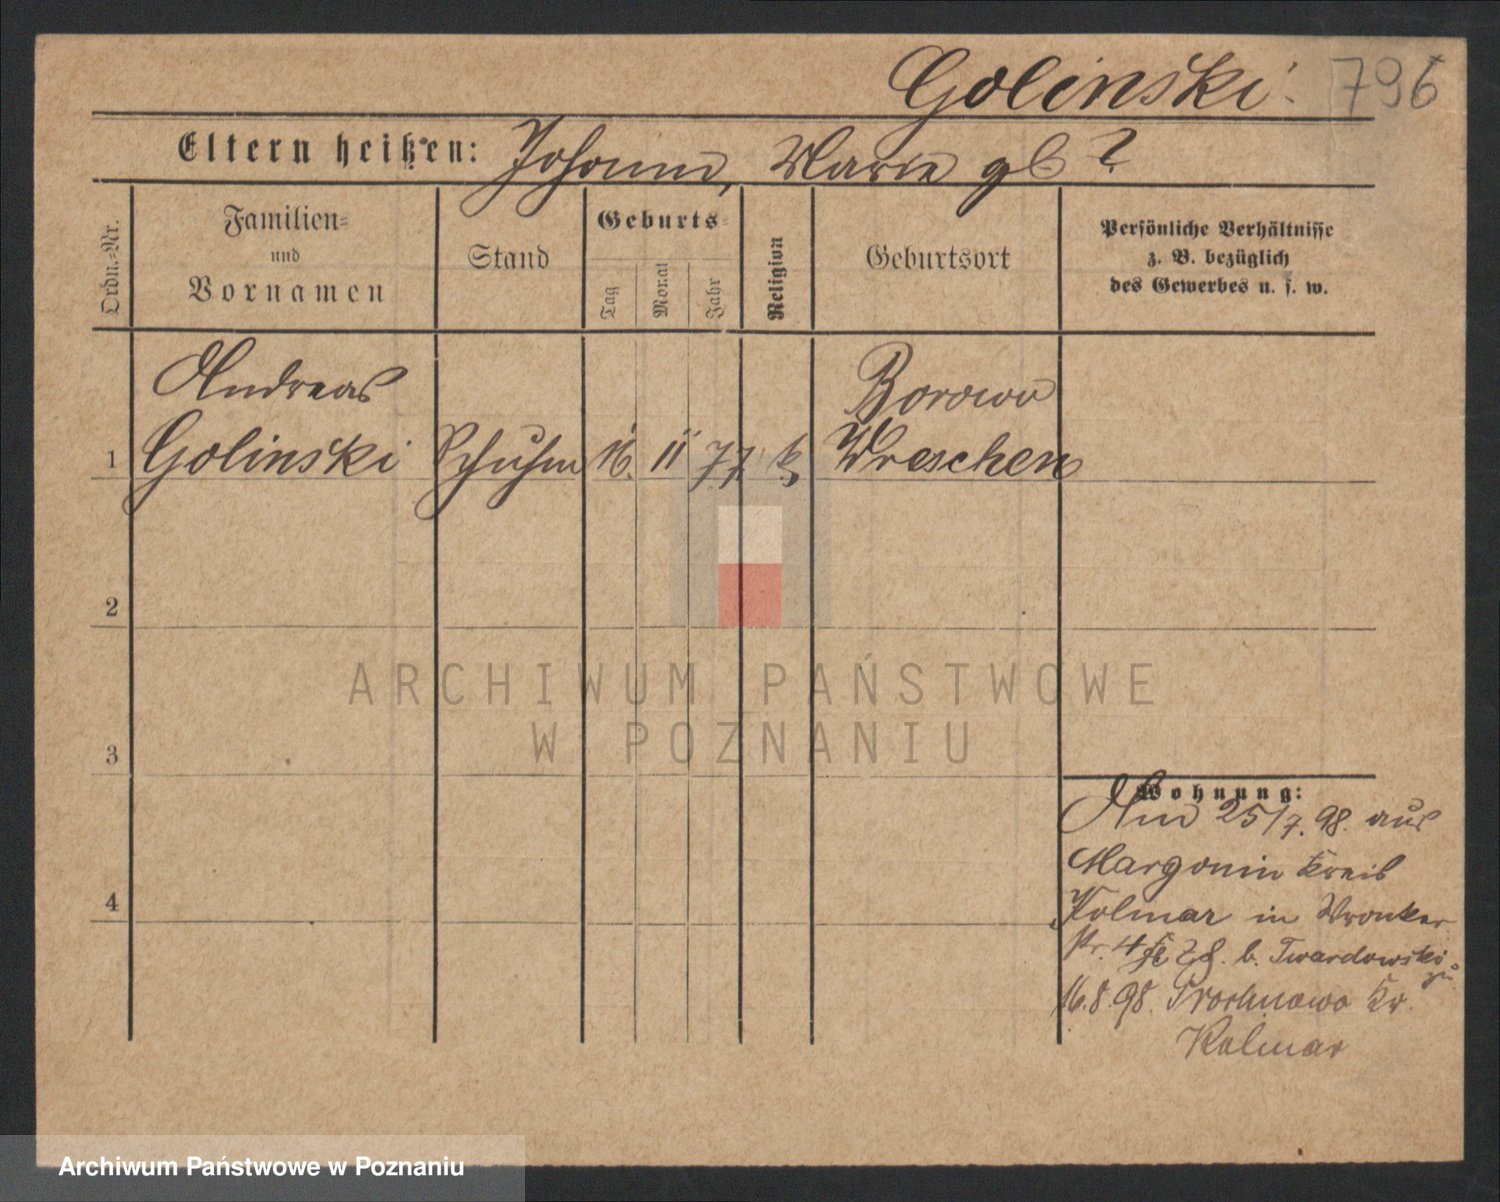 Golinski.
796
Eltern heißen: Johann, Marie gb ?
Ordn.=Nr.
Familien=
und
Vornamen
Stand
Geburts=
Tag
Monat
Jahr
Religion
Geburtsort
Persönliche Verhältnisse
z. B. bezüglich
des Gewerbes u. s. w.
Andreas Borowo
1 Golinski Schuhm 16. 11 77 k Wreschen
2
ARCHIWUM PAŃSTWOWE
W POZNANIU
3
Wohnung:
And 25/7. 98. aus
Margonin Kreis
4
Kolmar in Wronker
str. 4 b. Twardowski
zu
16.8.98. Prochnowo Kr.
Kolmar
Archiwum Państwowe w Poznaniu